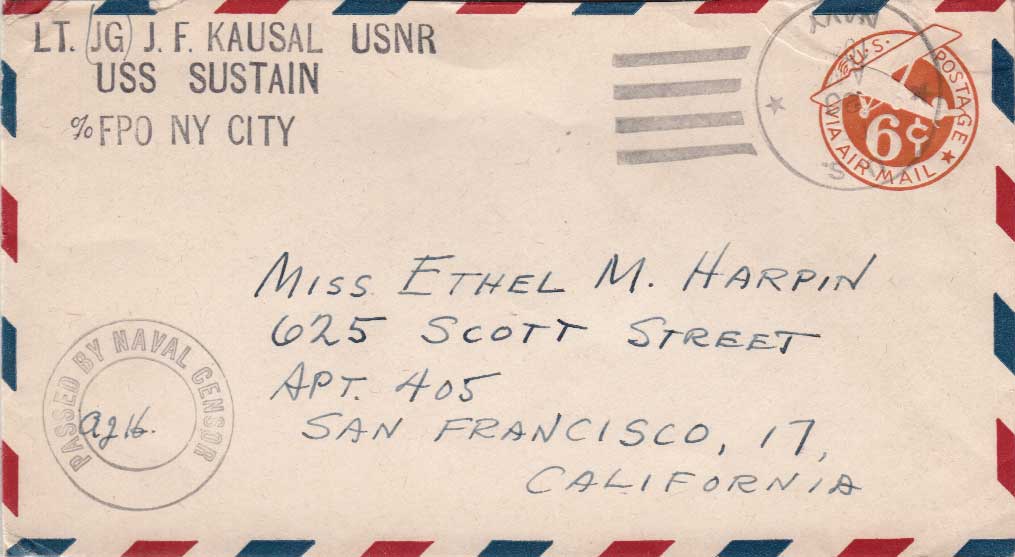 LT. (JG) J. F. KAUSAL USNR
USS SUSTAIN
% FPO NY CITY
U.S. POSTAGE
6¢
VIA AIR MAIL
MISS ETHEL M. HARPIN
625 SCOTT STREET
APT. 405
SAN FRANCISCO, 17,
CALIFORNIA
PASSED BY NAVAL CENSOR